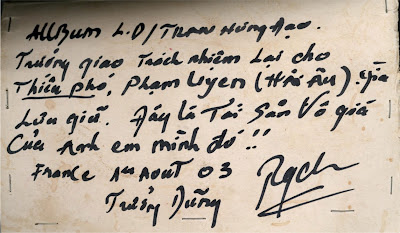 Album L.Đ/TRẦN Hưng Đạo.
Trưởng giao Trách nhiệm lại cho
Thiếu phó, Phạm Uyen (Hải Âu). Gìn
Lưu giữ. Đây là Tài Sản Vô giá
Của Anh em mình đó !!
France 1er Aout 03
Trưởng Dũng